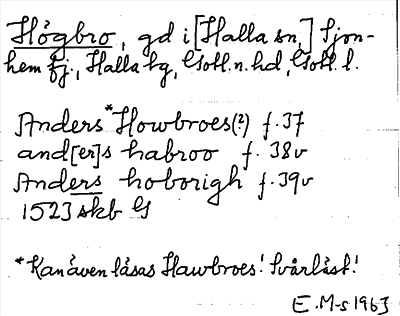 Högbro, gd i [Halla sn,] Sjon-
hem fj., Halla hg, Gotl. n. hd, Gotl. l.
Anders *Howbroes(?) f. 37
and[er]s habroo f. 38v
Anders hoborigh f. 39v
1523 skb G
*Kan även läsas Hawbroes! Svårläst!
E. M-s 1963